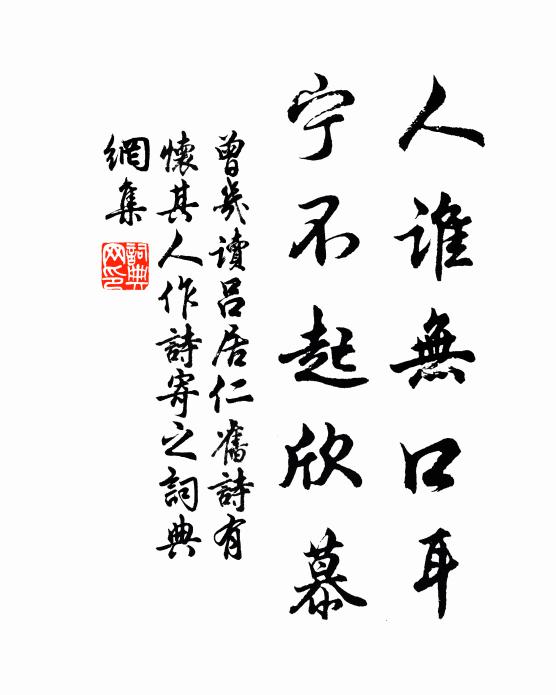 人誰無口耳
宁不起欣慕
曾幾讀呂居仁舊詩有
懷其人作詩寄之詞典
網集
詞典
网印